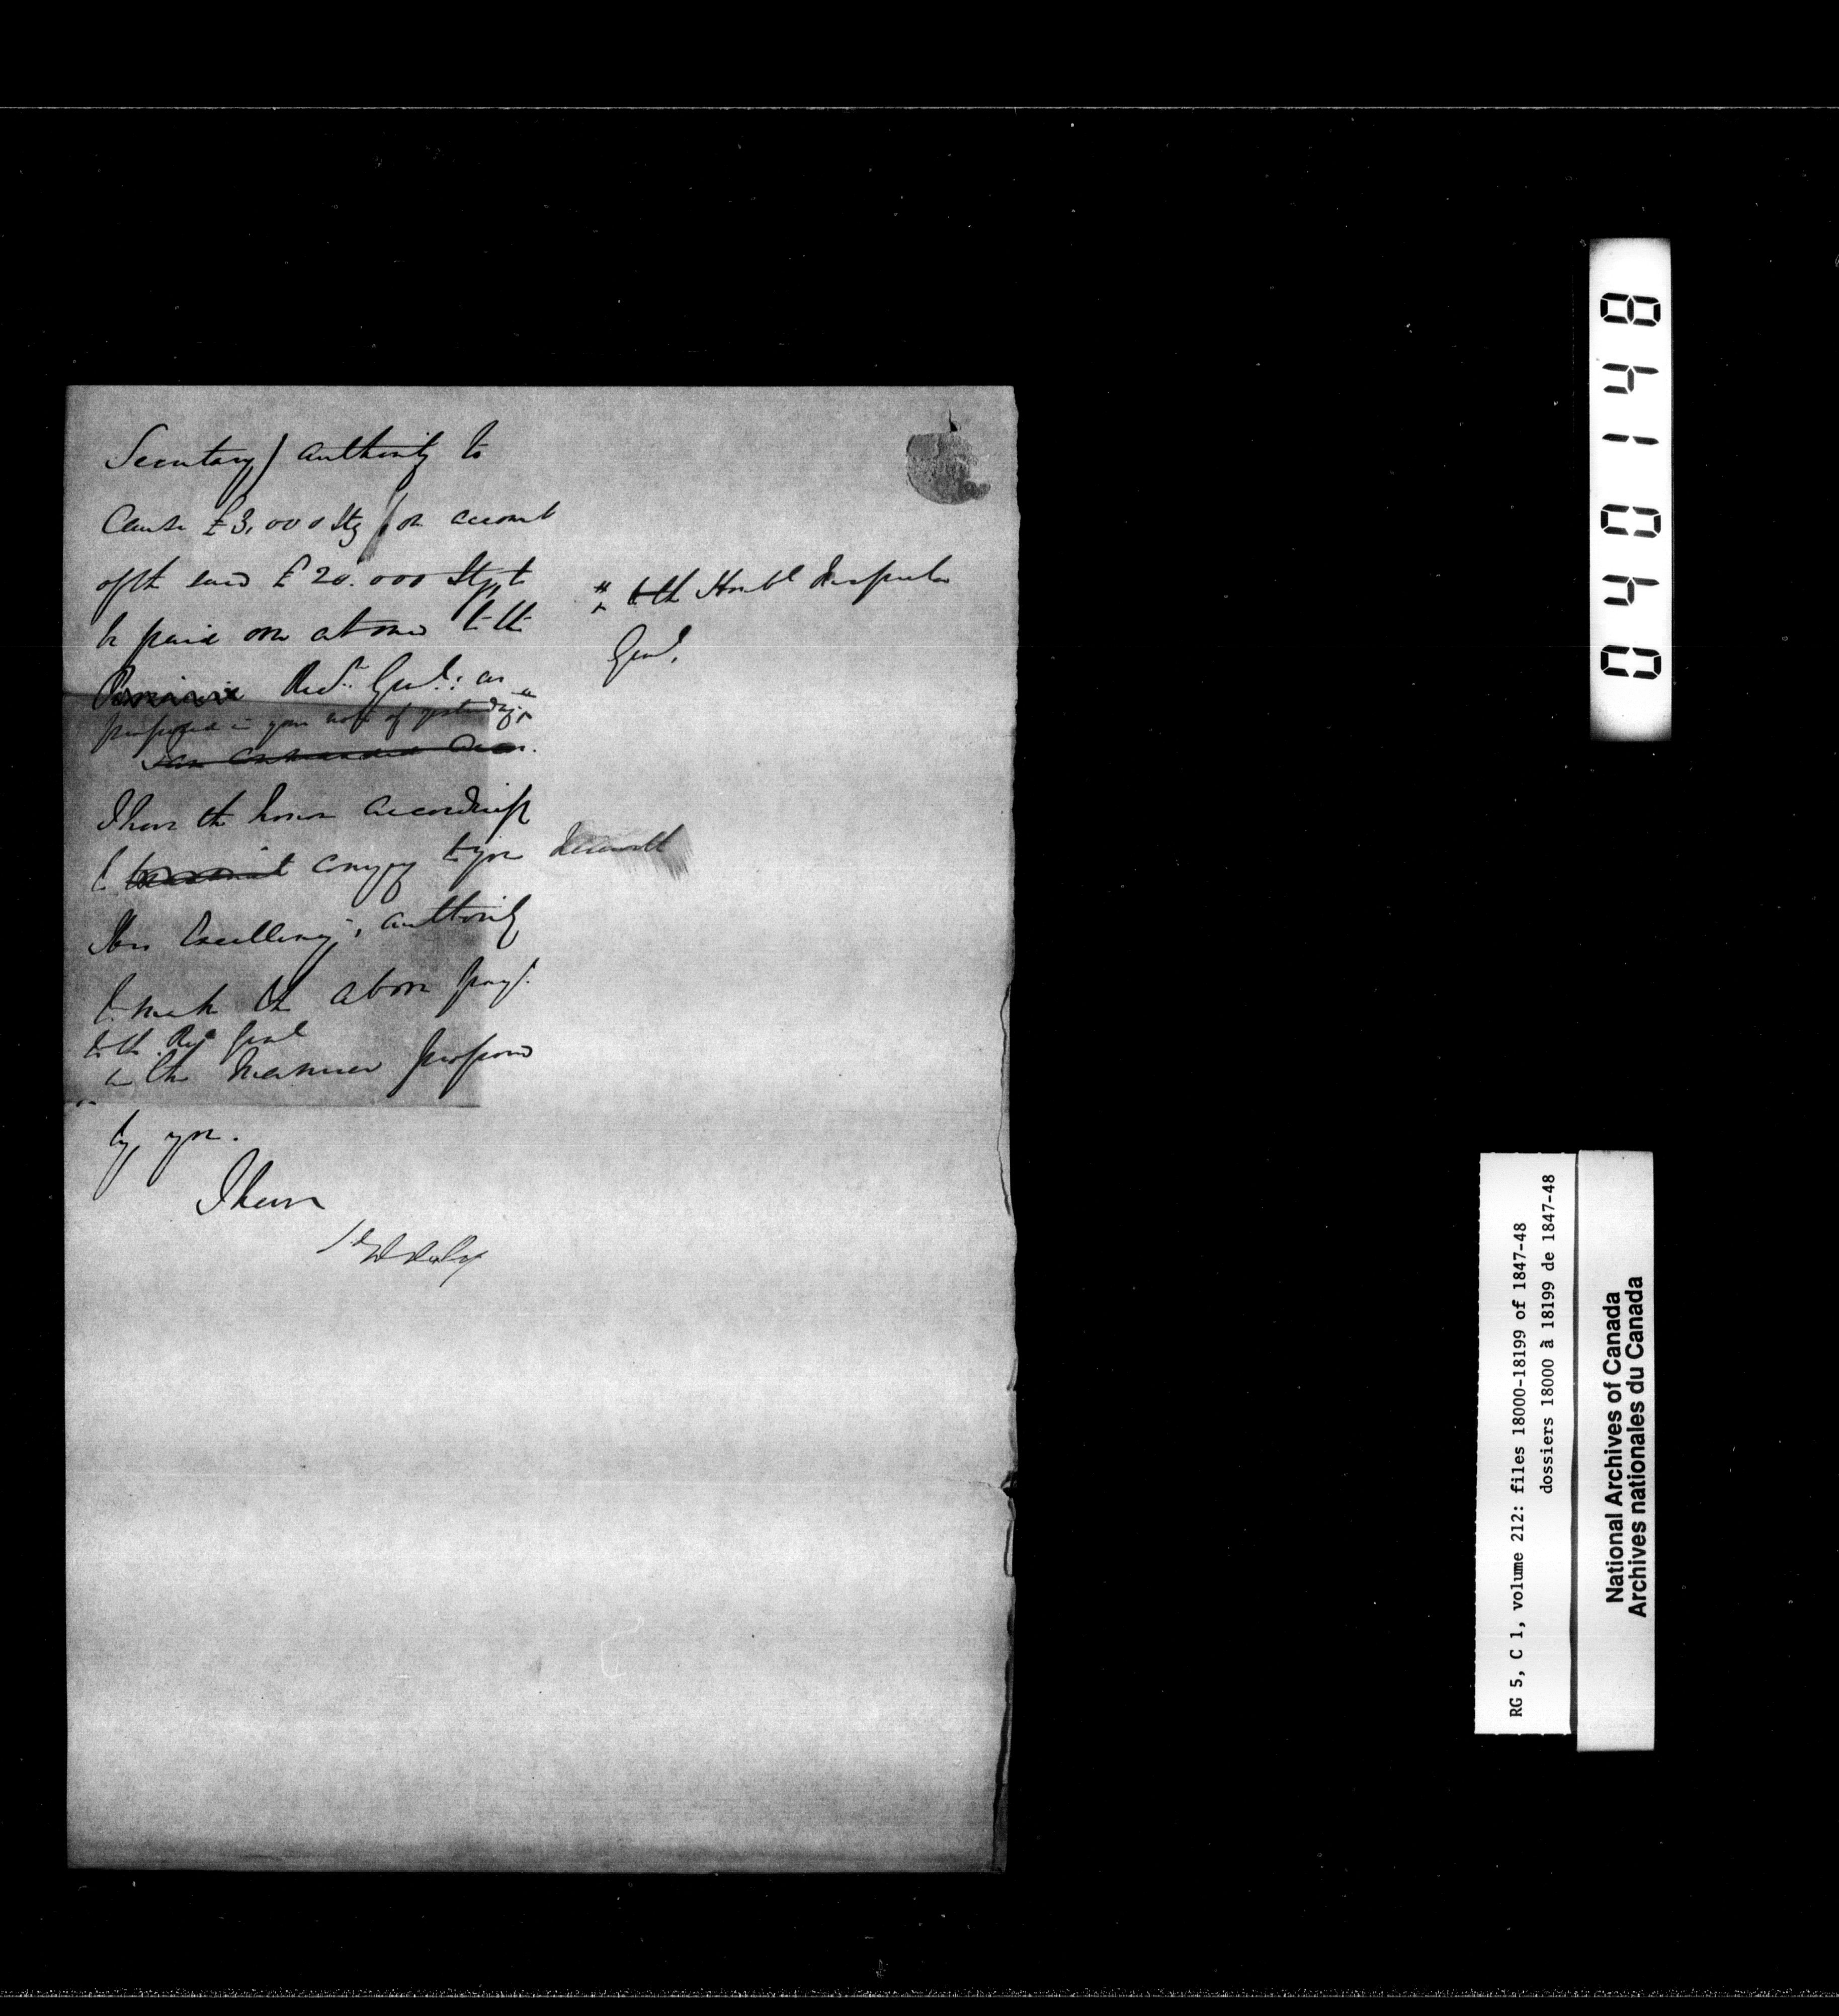 Secretary) authority to
Cause £3,000 Stg / on account
of the said £20.000 Stg, to
be paid over at once to the
Recr. Genl: as
proposed in your note of yesterday
I have the honor accordingly
to convey to you
His Excellency's authority
to make the above payt.
to the Rec Genl
in the manner proposed
by you.
I have
Sd D Daly
* to the Honble Inspector
Genl.
84 1 0 4 0
RG 5, C 1, volume 212: files 18000-18199 of 1847-48
dossiers 18000 à 18199 de 1847-48
National Archives of Canada
Archives nationales du Canada